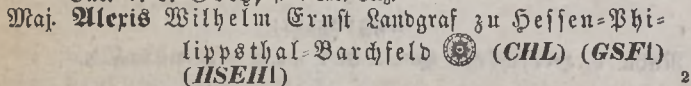 Maj. Alexis Wilhelm Ernſt Landgraf zu Heſſen-Phi-
lippsthal-Barchfeld (CHL) (GSF1)
(HSEH1) 2